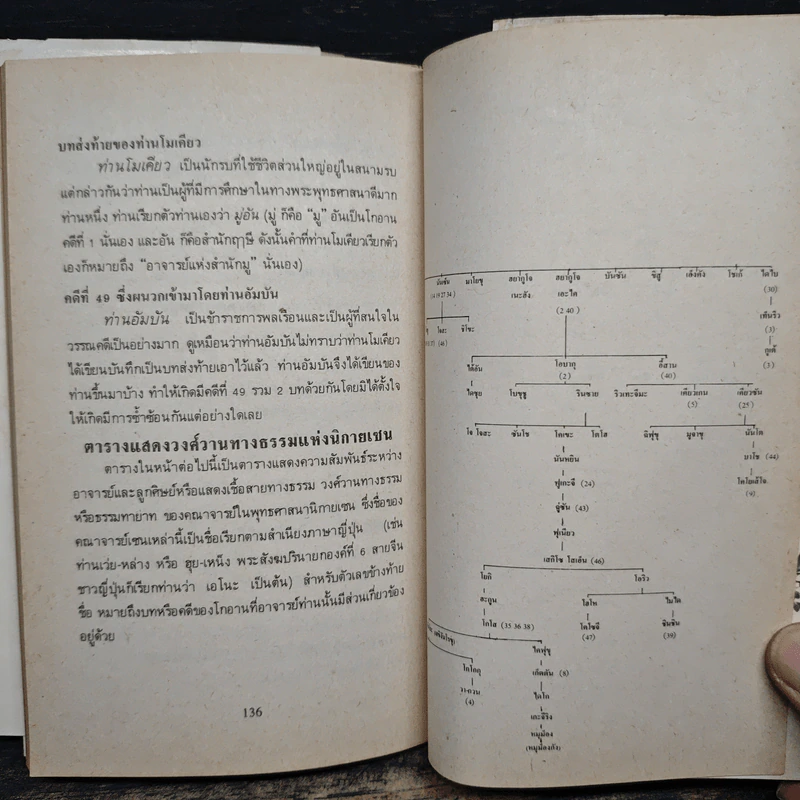 บทส่งท้ายของท่านโมเคียว
ท่านโมเคียว เป็นนักรบที่ใช้ชีวิตส่วนใหญ่อยู่ในสนามรบ
แต่กล่าวกันว่าท่านเป็นผู้ที่มีการศึกษาในทางพระพุทธศาสนาดีมาก
ท่านหนึ่ง ท่านเรียกตัวท่านเองว่า มู่อัน (มู่ ก็คือ “มู” อันเป็นโกอาน
คดีที่ 1 นั่นเอง และอัน ก็คือสำนักฤๅษี ดังนั้นคำที่ท่านโมเคียวเรียกตัว
เองก็หมายถึง “อาจารย์แห่งสำนักมู” นั่นเอง)
คดีที่ 49 ซึ่งผนวกเข้ามาโดยท่านอัมบัน
ท่านอัมบัน เป็นข้าราชการพลเรือนและเป็นผู้ที่สนใจใน
วรรณคดีเป็นอย่างมาก ดูเหมือนว่าท่านอัมบันไม่ทราบว่าท่านโมเคียว
ได้เขียนบันทึกเป็นบทส่งท้ายเอาไว้แล้ว ท่านอัมบันจึงได้เขียนของ
ท่านขึ้นมาบ้าง ทำให้เกิดมีคดีที่ 49 รวม 2 บทด้วยกันโดยมิได้ตั้งใจ
ให้เกิดมีการซ้ำซ้อนกันแต่อย่างใดเลย
ตารางแสดงวงศ์วานทางธรรมแห่งนิกายเซน
ตารางในหน้าต่อไปนี้เป็นตารางแสดงความสัมพันธ์ระหว่าง
อาจารย์และลูกศิษย์หรือแสดงเชื้อสายทางธรรม วงศ์วานทางธรรม
หรือธรรมทายาท ของคณาจารย์ในพุทธศาสนานิกายเซน ซึ่งชื่อของ
คณาจารย์เซนเหล่านี้เป็นชื่อเรียกตามสำเนียงภาษาญี่ปุ่น (เช่น
ท่านเว่ย-หล่าง หรือ ฮุย-เหนิง พระสังฆปรินายกองค์ที่ 6 สายจีน
ชาวญี่ปุ่นก็เรียกท่านว่า เอโนะ เป็นต้น) สำหรับตัวเลขข้างท้าย
ชื่อ หมายถึงบทหรือคดีของโกอานที่อาจารย์ท่านนั้นมีส่วนเกี่ยวข้อง
อยู่ด้วย
136
นันซัน มาโยขุ สยากูโจ สยากูโจ บันซัน ไดไบ
เนะสัง เอะไค (30)
(2 40) เท็นริว
(3)
กูเต้
(3)
โอบากุ อิ๊สาน
(2) (40)
รินซาย เคียวเกน เคียวซัน
(5) (25)
โคเซะ
นันหยิน บาโช (44)
ฟูเกะจิ (24)
ชูซัน (43)
ฟุเนียว
เสกิโซ โสเอ้น (46)
โยกิ โอริว
โกโส (35 36 38)
(47) (39)
เก็ตตัน (8)
(4) ไดโก
หมูม้อง
(หมูม้องกัง)